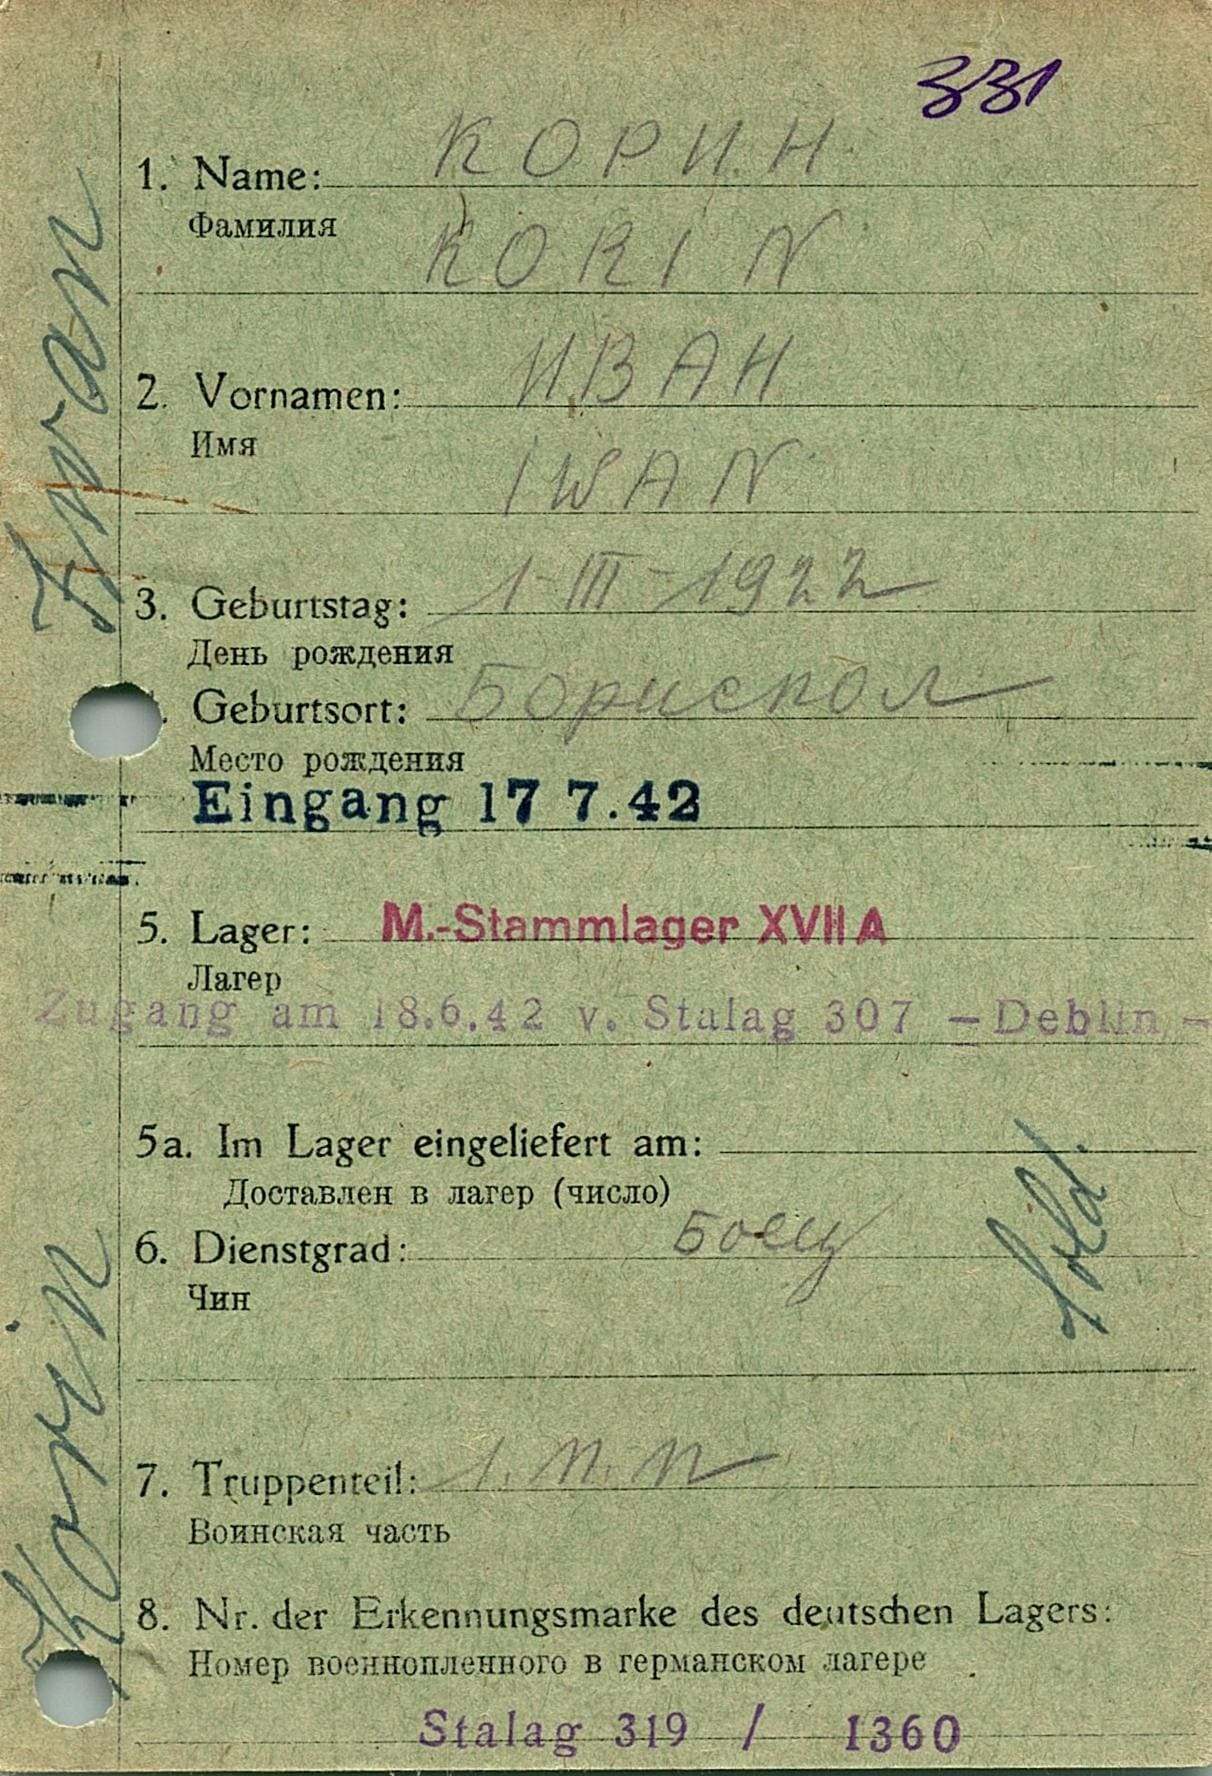 331
1. Name: КОРИН
Фамилия
KORIN
2. Vornamen: ИВАН
Имя
IWAN
3. Geburtstag: 1-III-1922
День рождения
. Geburtsort: Борискол
Место рождения
Eingang 17 7.42
5. Lager: M.-Stammlager XVII A
Лагер
Zugang am 18.6.42 v. Stalag 307 – Deblin –
5a. Im Lager eingeliefert am:
Доставлен в лагер (число)
6. Dienstgrad: Боец
Чин
Sold.
7. Truppenteil: 1. П. П
Воинская часть
8. Nr. der Erkennungsmarke des deutschen Lagers:
Номер военнопленного в германском лагере
Stalag 319 / 1360
Korin Iwan